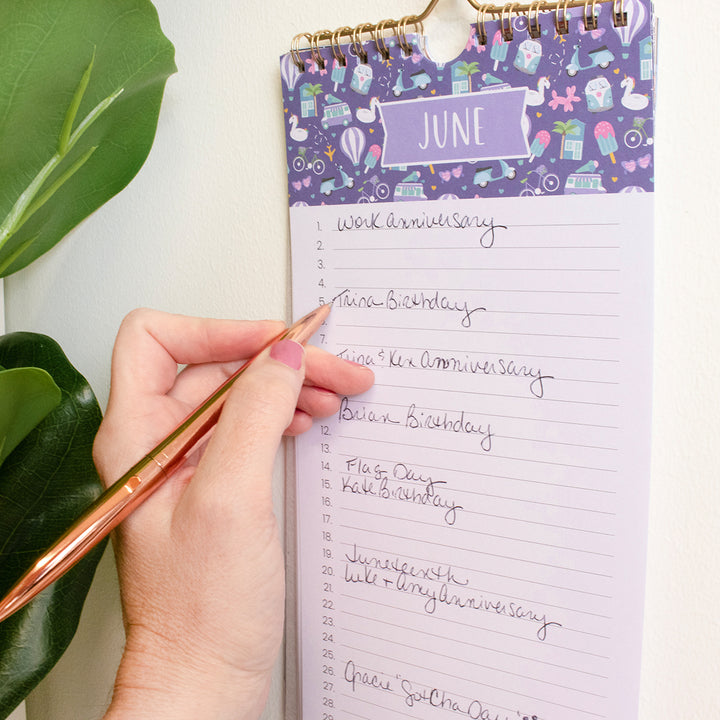 JUNE
1. Work Anniversary
2.
3.
4.
5. Trina Birthday
6.
7.
Trina & Ken Anniversary
Brian Birthday
12.
13.
14. Flag Day
15. Kate Birthday
16.
17.
18.
19. Juneteenth
20. Luke + Amy Anniversary
21.
22.
23.
24.
25.
26. Gracie "GotCha Day"
27.
28.
29.